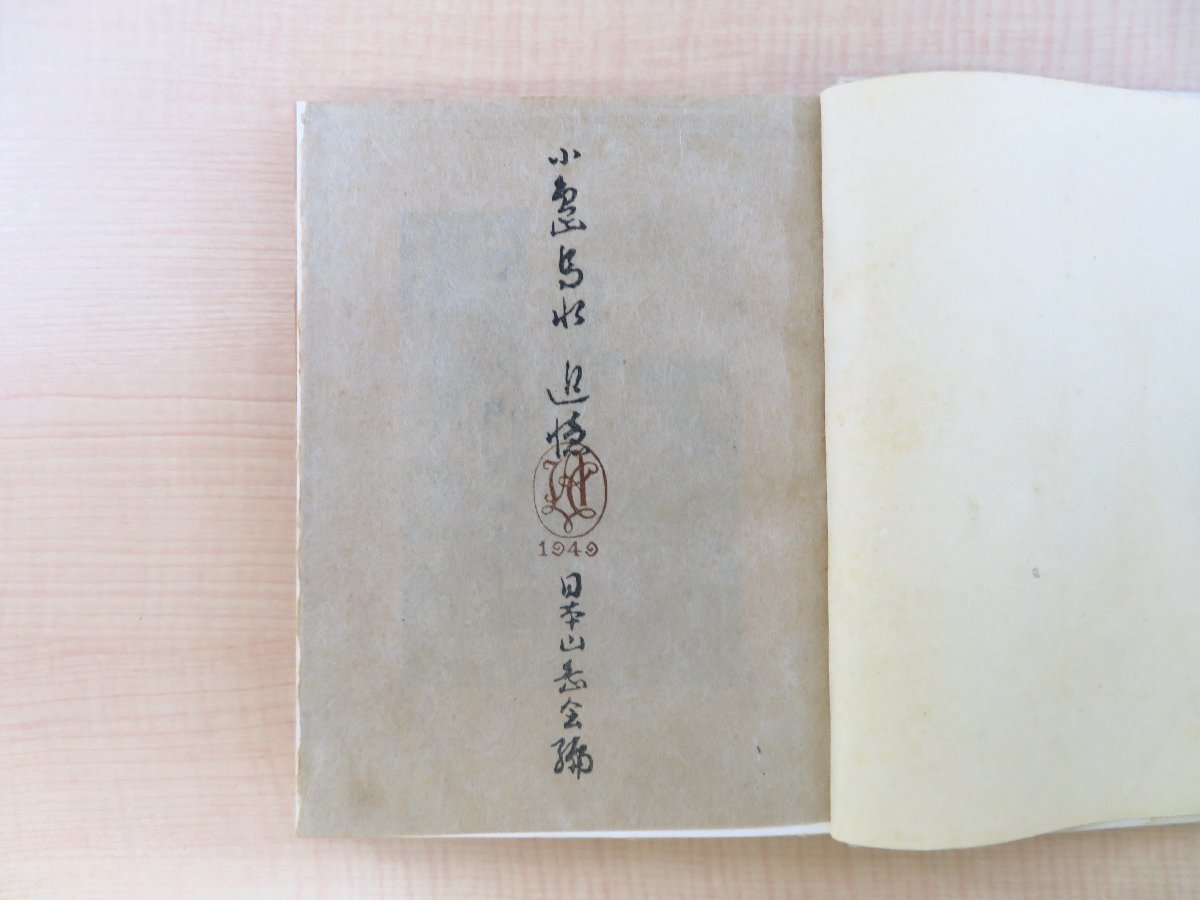 小島烏水 追憶
1949
日本山岳会編